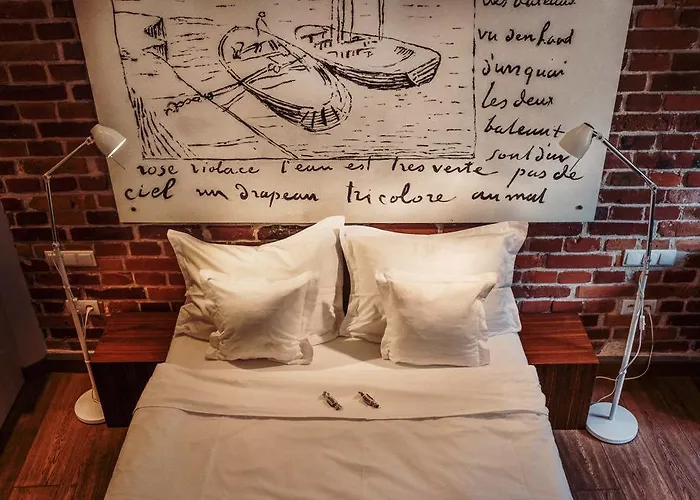 des bateaux
vu d'en haut
d'un quai
les deux
bateaux
sont d'un
rose violacé l'eau est tres verte pas de
ciel un drapeau tricolore au mat